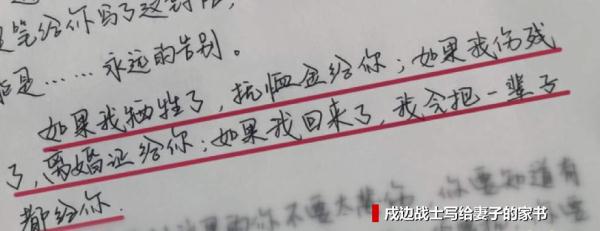 笔给你写了这封信,
是……永远的告别。
如果我牺牲了,抚恤金给你;如果我伤残
了,离婚证给你;如果我回来了,我会把一辈子
都给你.
你不要太悲伤,你要知道有
戍边战士写给妻子的家书